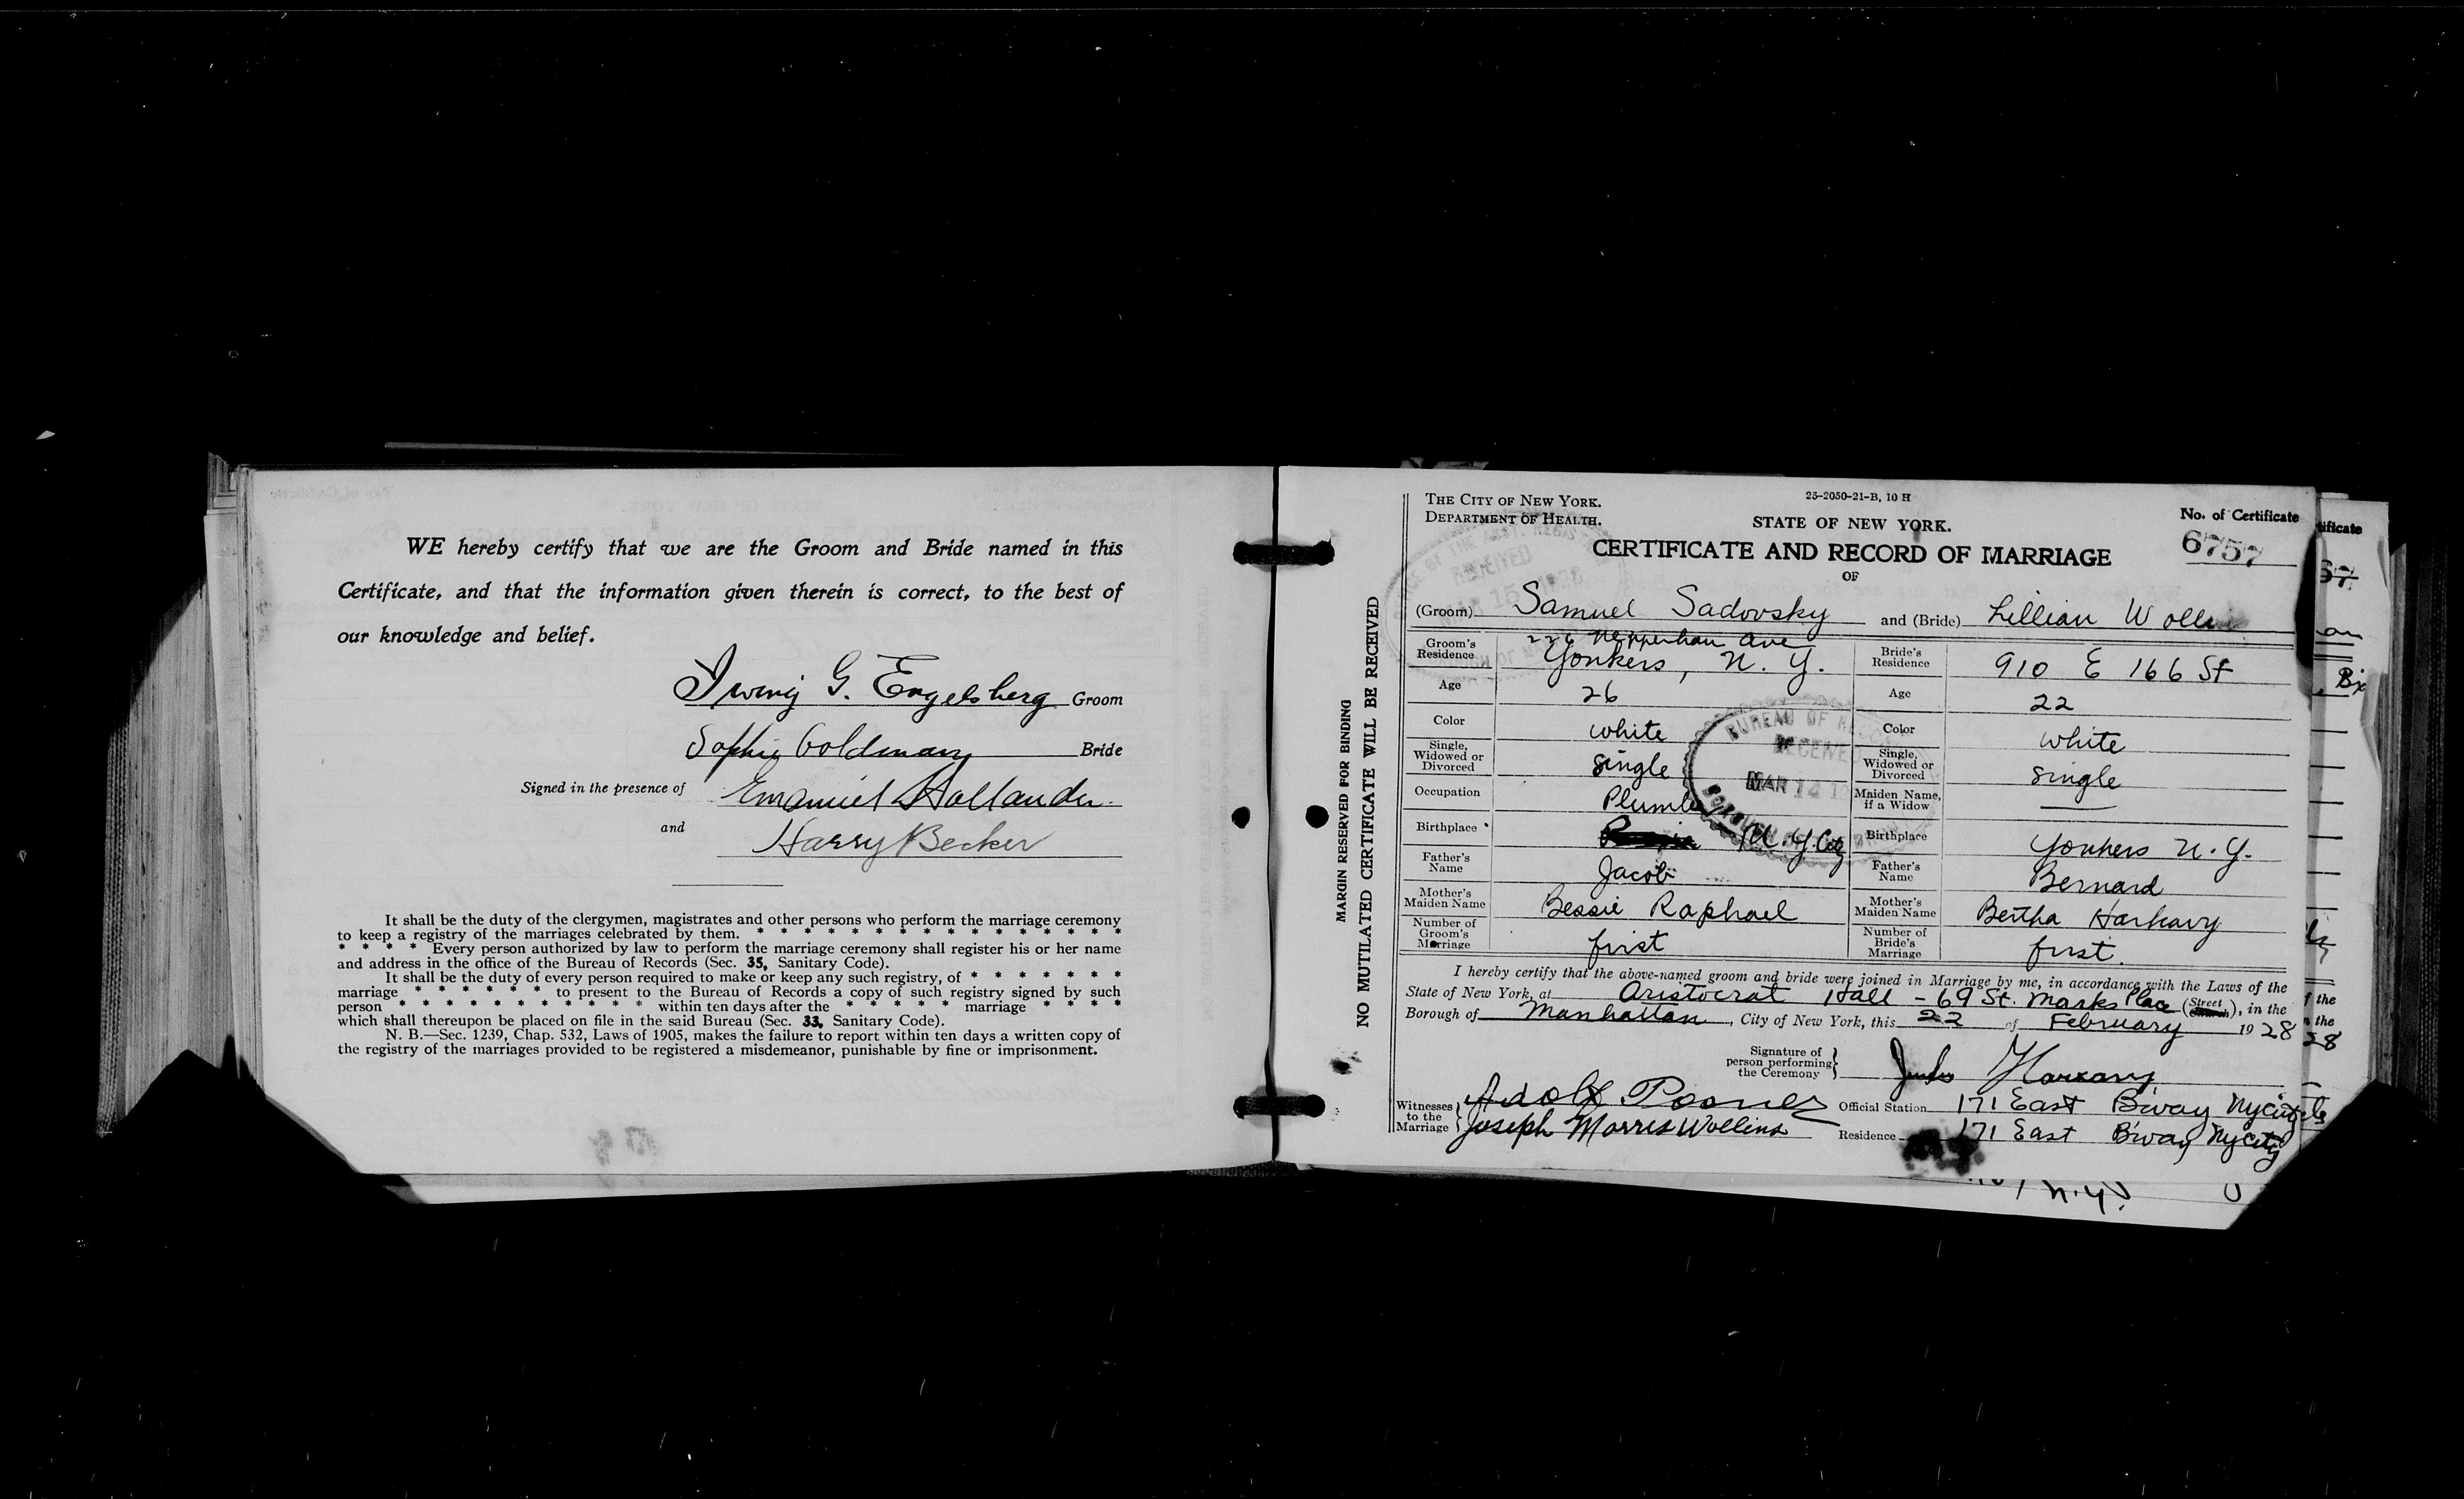 WE hereby certify that we are the Groom and Bride named in this
Certificate, and that the information given therein is correct, to the best of
our knowledge and belief.
Irwing G. Engelsberg Groom
Sophie Goldman Bride
Signed in the presence of Emanuel Hollander
and Harry Becker
It shall be the duty of the clergymen, magistrates and other persons who perform the marriage ceremony
to keep a registry of the marriages celebrated by them. * * * * * * * * * * * * * * * *
* * * * Every person authorized by law to perform the marriage ceremony shall register his or her name
and address in the office of the Bureau of Records (Sec. 35, Sanitary Code).
It shall be the duty of every person required to make or keep any such registry, of * * * * * * *
marriage * * * * * * * to present to the Bureau of Records a copy of such registry signed by such
person * * * * * * * * * * * within ten days after the * * * * * marriage * * * *
which shall thereupon be placed on file in the said Bureau (Sec. 33, Sanitary Code).
N. B.—Sec. 1239, Chap. 532, Laws of 1905, makes the failure to report within ten days a written copy of
the registry of the marriages provided to be registered a misdemeanor, punishable by fine or imprisonment.
MARGIN RESERVED FOR BINDING
NO MUTILATED CERTIFICATE WILL BE RECEIVED
THE CITY OF NEW YORK.
DEPARTMENT OF HEALTH.
25-2050-21-B, 10 H
STATE OF NEW YORK.
CERTIFICATE AND RECORD OF MARRIAGE
OF
No. of Certificate
6757
(Groom) Samuel Sadovsky and (Bride) Lillian
Groom's Residence 226 Nepperhan Ave Yonkers, N. Y.
Bride's Residence 910 E 166 St
Age 26
Age 22
Color white
Color white
Single, Widowed or Divorced single
Single, Widowed or Divorced single
Occupation Plumber
Maiden Name, if a Widow
Birthplace N. Y. City
Birthplace Yonkers N. Y.
Father's Name Jacob
Father's Name Bernard
Mother's Maiden Name Bessie Raphael
Mother's Maiden Name Bertha Harkavy
Number of Groom's Marriage first
Number of Bride's Marriage first.
BUREAU OF
RECEIVED
MAR 14
I hereby certify that the above-named groom and bride were joined in Marriage by me, in accordance with the Laws of the
State of New York, at Aristocrat Hall - 69 St. Marks Place (Street Church), in the
Borough of Manhattan, City of New York, this 22 of February 1928
Signature of person performing the Ceremony
Witnesses to the Marriage Adolf
Joseph Morris Wollins
Official Station 171 East Bway NyCity
Residence 171 East Bway NyCity
N.Y.